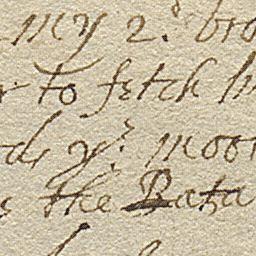 my 2.d bro
to fetch
ye moo
the Bata